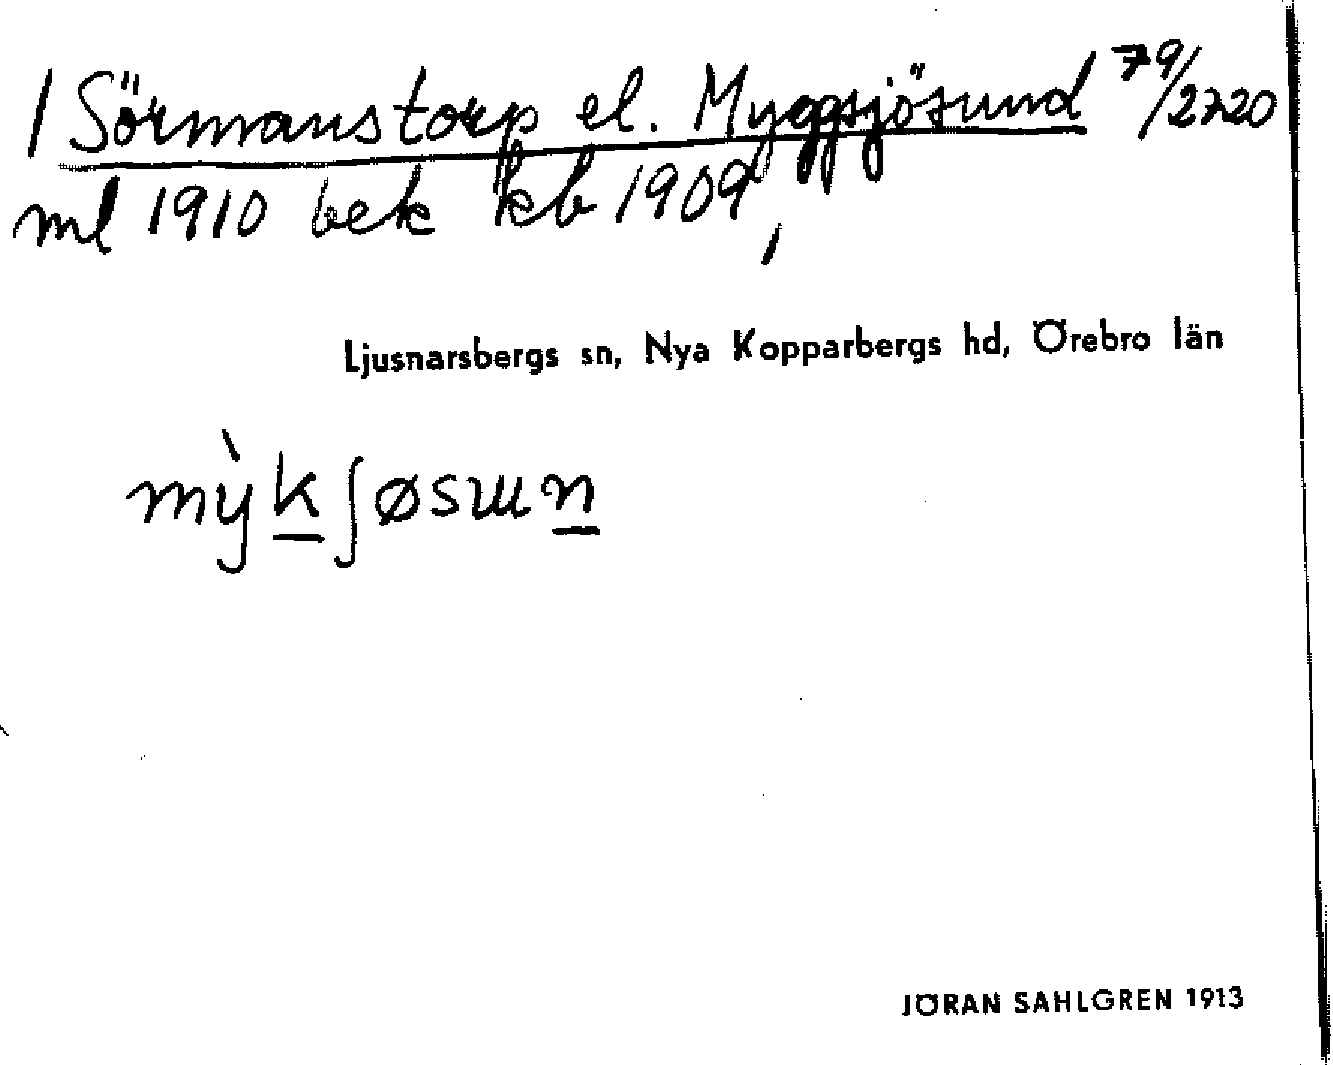 / Sörmanstorp el. Myggsjösund 79/2720
ml 1910 bek kb 1909,
Ljusnarsbergs sn, Nya Kopparbergs hd, Örebro län
mỳkʃøsɯn
JÖRAN SAHLGREN 1913